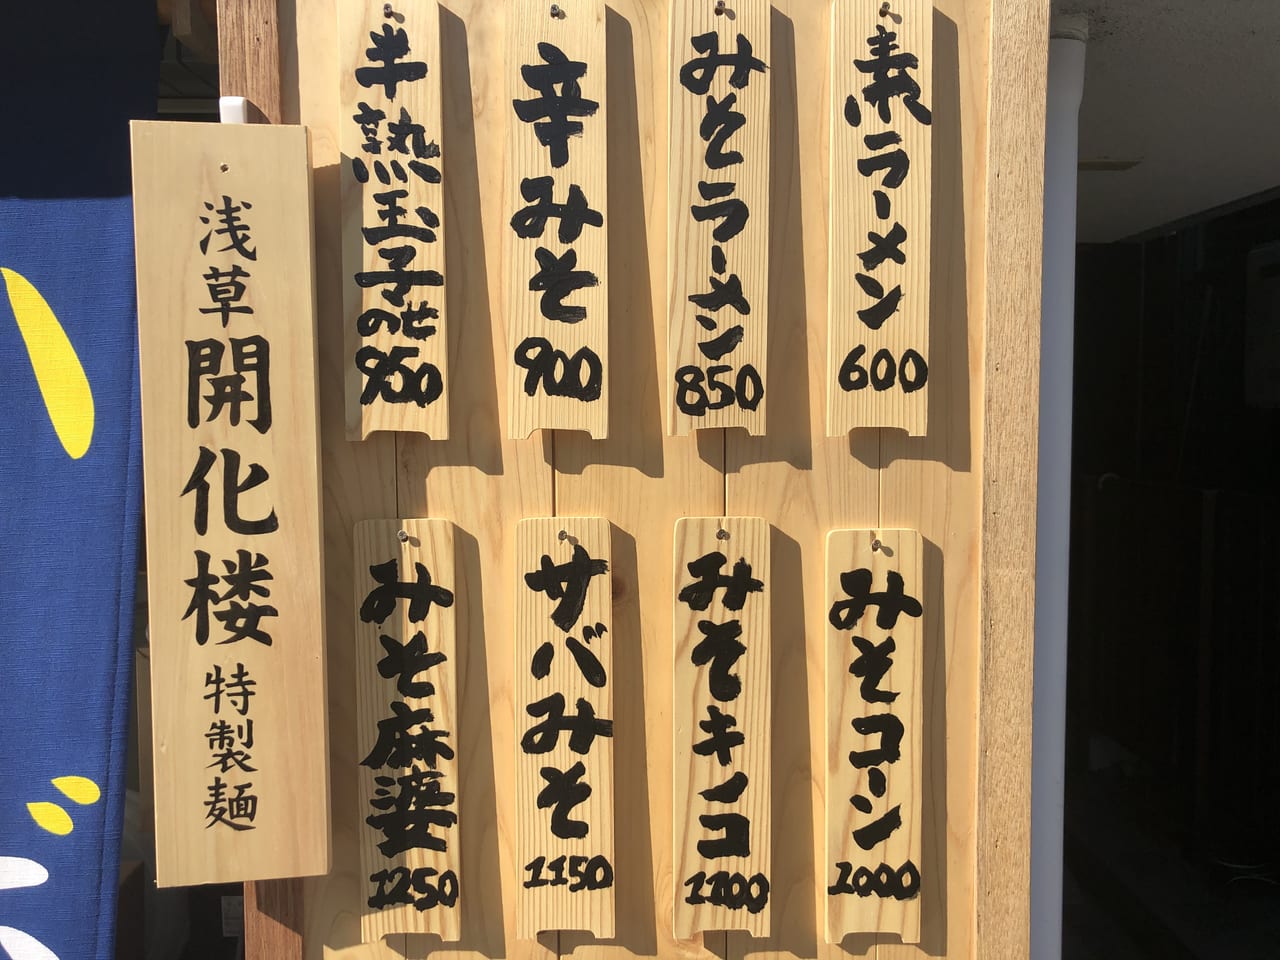 素ラーメン
600
みそラーメン
850
辛みそ
900
半熟玉子のせ
950
みそコーン
1000
みそキノコ
1100
サバみそ
1150
みそ麻婆
1250
浅草開化楼特製麺